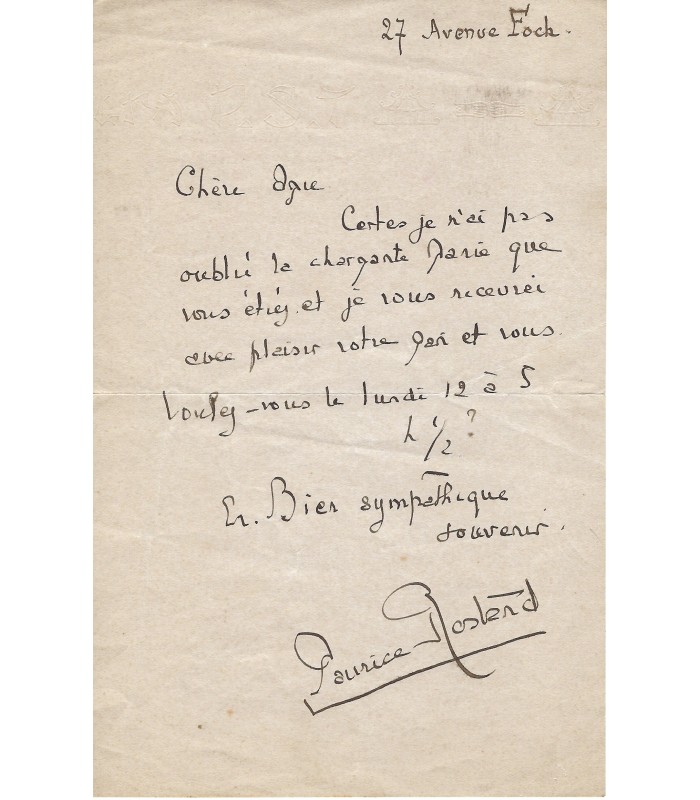 27 Avenue Foch.
Chère
Certes je n'ai pas
oublié la charmante Marie que
vous étiez. et je vous recevrai
avec plaisir votre Mari et vous.
Voulez-vous le lundi 12 à 5
h 1/2 ?
En. Bien sympathique
souvenir.
Maurice Rostand